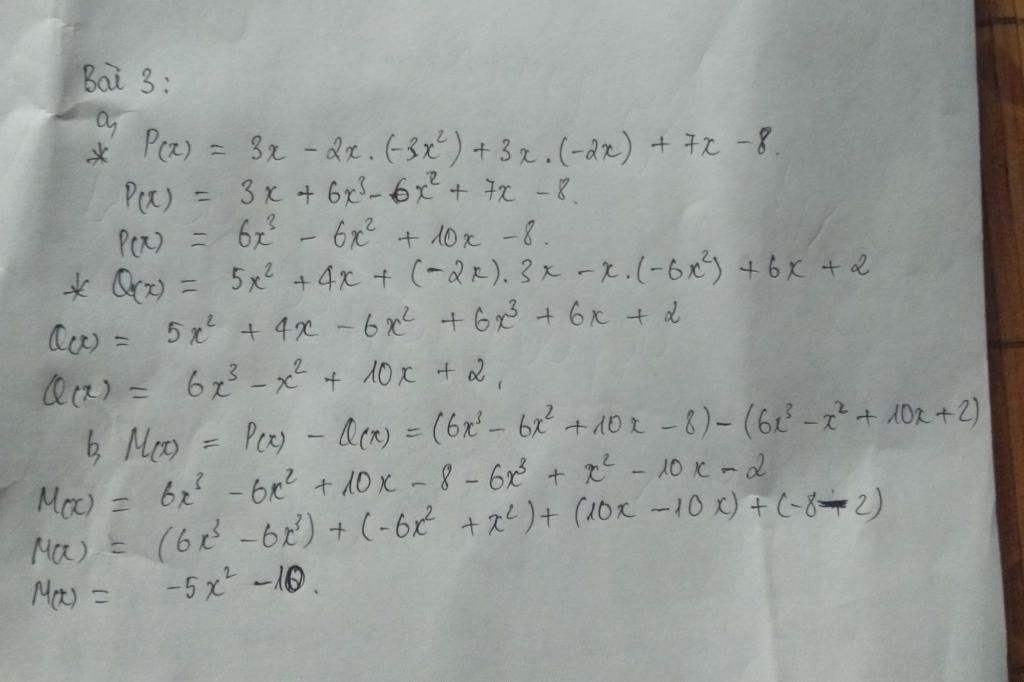 Bài 3:
a,
* P(x) = 3x - 2x.(-3x²) + 3x.(-2x) + 7x - 8.
P(x) = 3x + 6x³ - 6x² + 7x - 8.
P(x) = 6x³ - 6x² + 10x - 8.
* Q(x) = 5x² + 4x + (-2x).3x - x.(-6x²) + 6x + 2
Q(x) = 5x² + 4x - 6x² + 6x³ + 6x + 2
Q(x) = 6x³ - x² + 10x + 2.
b, M(x) = P(x) - Q(x) = (6x³ - 6x² + 10x - 8) - (6x³ - x² + 10x + 2)
M(x) = 6x³ - 6x² + 10x - 8 - 6x³ + x² - 10x - 2
M(x) = (6x³ - 6x³) + (-6x² + x²) + (10x - 10x) + (-8 - 2)
M(x) = -5x² - 10.